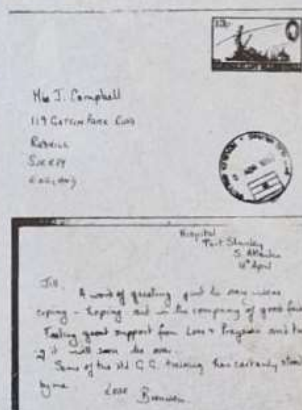 13p
Miss J. Campbell
119 Gatton Park Road
Redhill
Surrey
England
Hospital
Port Stanley
S. Atlantic
4th April
Jill
A word of greeting just to say we're
coping - hoping and in the company of good
Feeling great support from Love + Prayers and
it will soon be over.
Some of the old G.G. training has certainly stood
by me.
Love Bronwen